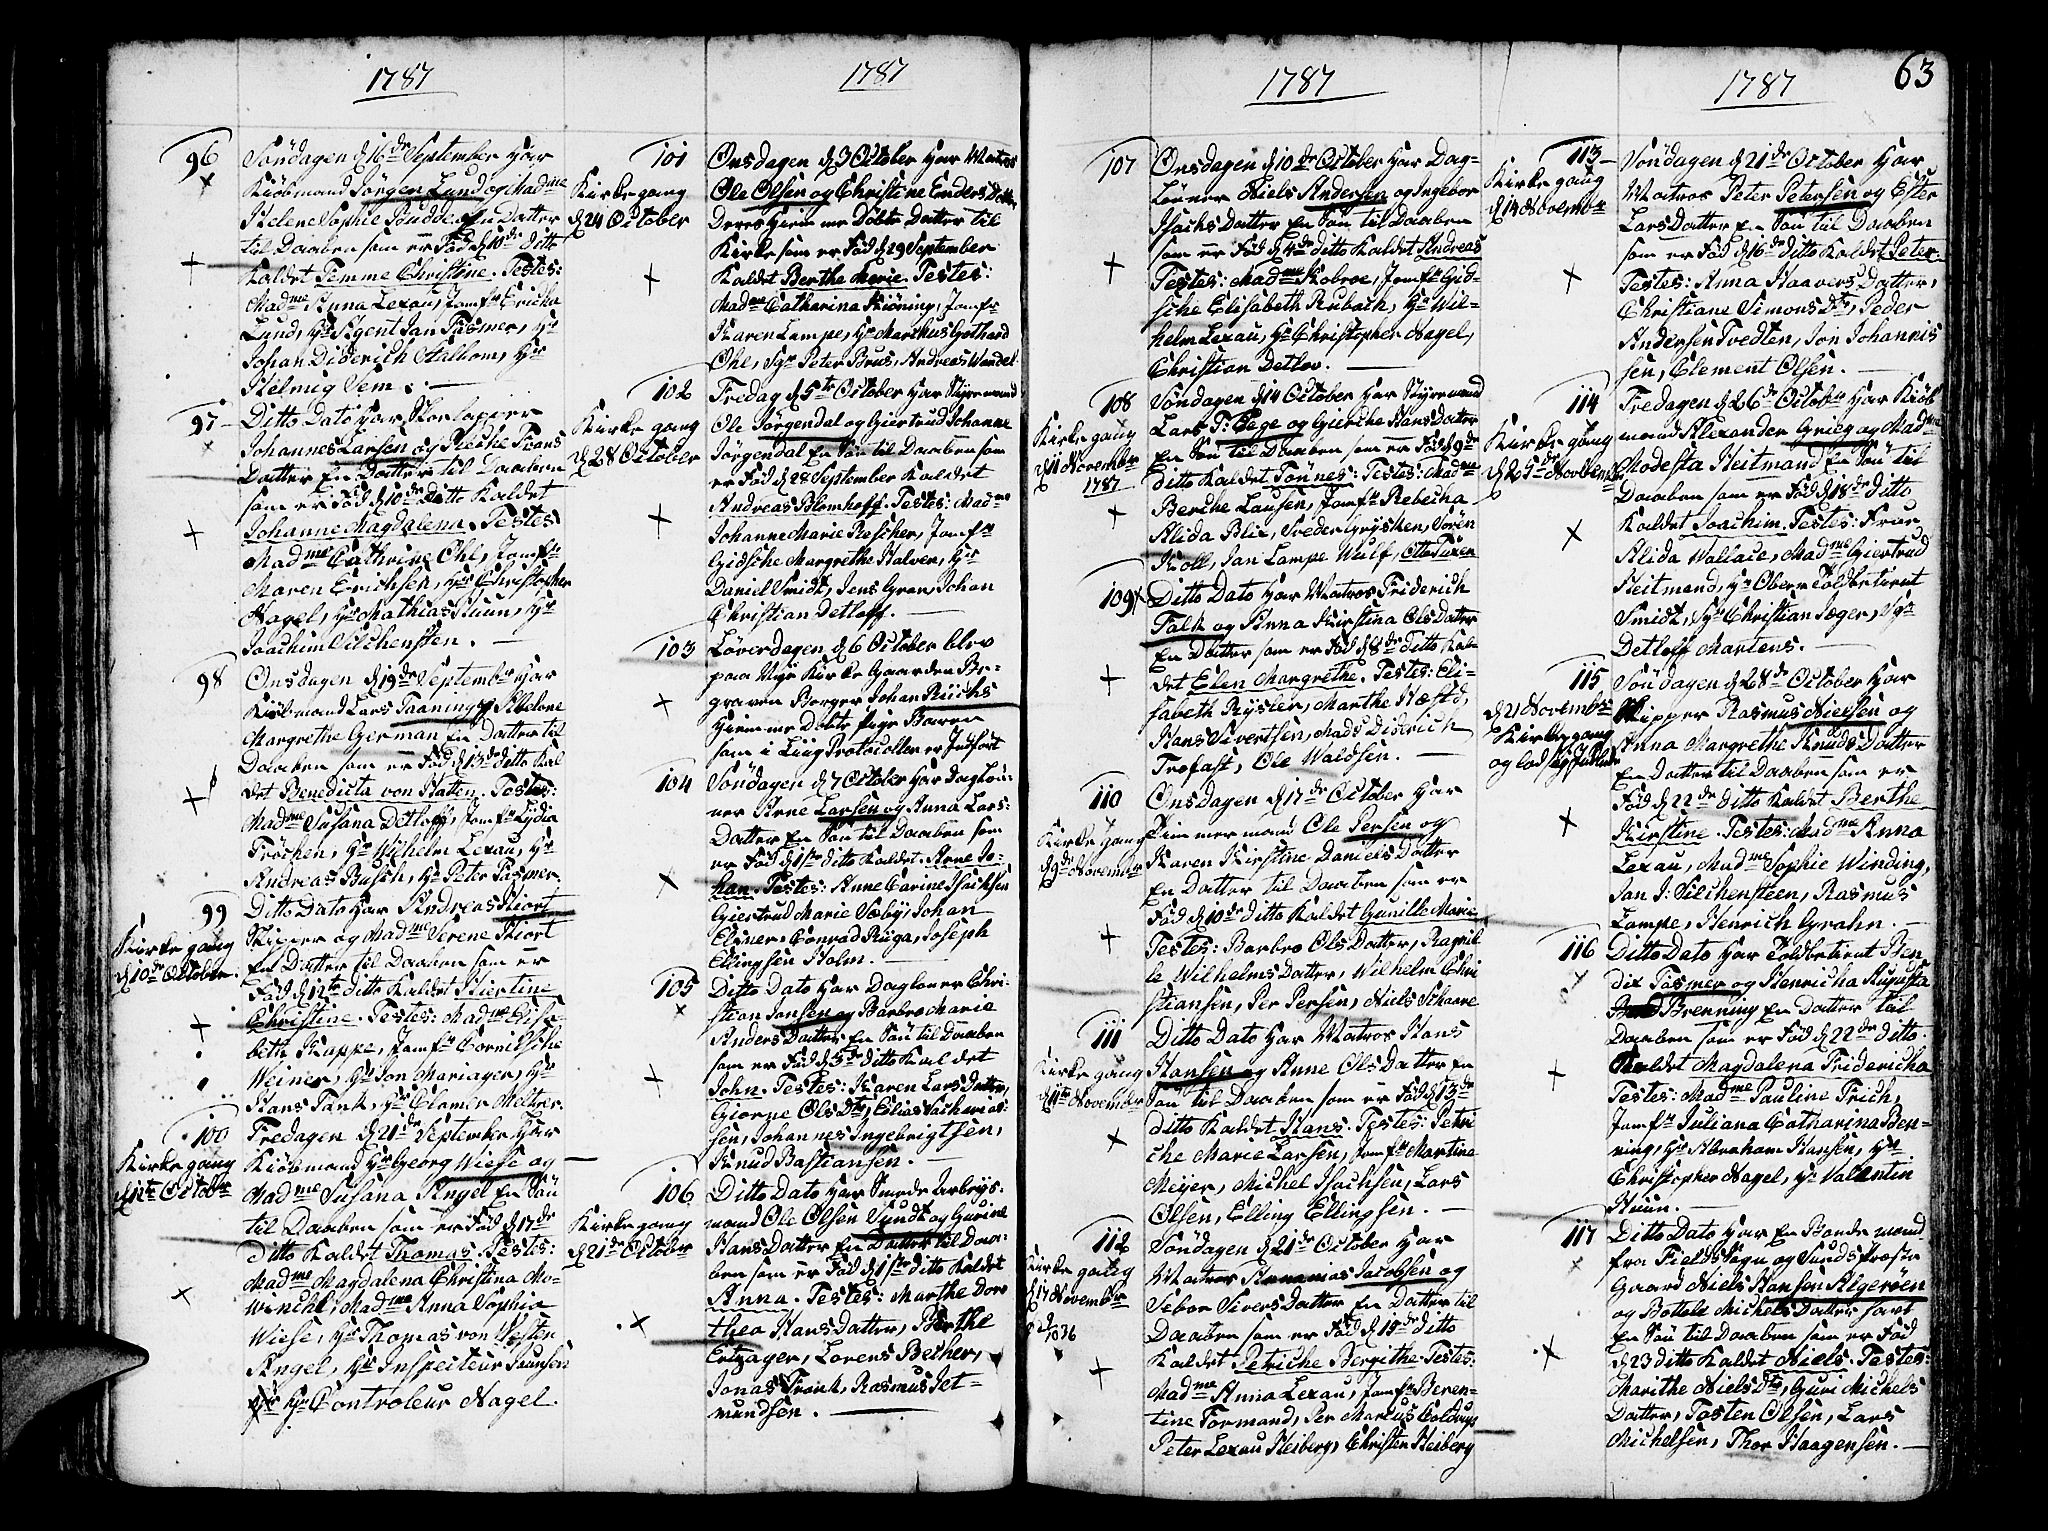 1787
96
Söndagen d 16de September har
Kiöbmand Jörgen Lund og Madme
Helene Sophie Budde En Datter
til Daaben som er Föd d 10de ditto
Kaldet Temme Christine. Testes:
Madme Anna Lexau, Jomfr Ericha
Lund, Hr Agent Jan Fasmer, Hr
Johan Diderich Stalhom, Hr
Helmig Vem.
97
Ditto Dato har Skorlapper
Johannes Larsen og Frans
Datter En Datter til Daaben
som er Föd d 10de ditto Kaldet
Johanne Magdalena. Testes
Madme Cathrine Ohl, Jomfr
Maren Erichsen, Hr Christopher
Nagel, Hr Mathias Kuun, Hr
Joachim Vilchensten.
98
Onsdagen d 19de September har
Kiöbmand Lars Taaning og Abelone
Margrethe German En Datter til
Daaben som er Föd d 13de ditto Kal
det Benedicta von Hatten. Testes:
Madme Susana Detloff, Jomfr Lydia
Fröchen, Hr Wilhelm Lexau, Hr
Andreas Busch, Hr Peter Fasmer.
99
Kirke gang
d 10de October.
Ditto Dato har Andreas Kiort
Skipper og Madme Serene Kiort
En Datter til Daaben som er
Föd d 12te ditto Kaldet Kiertine
Christine. Testes: Madme Elisa
beth Kappe, Jomfr Cornelsche
Weiner, Hr Jon Mariager, Hr
Hans Tank, Hr Clamer Meltzer.
100
Kirke gang
d 12te October
Fredagen d 21de September har
Kiöbmand Hr Georg Wiese og
Madme Susana Angel En Sön
til Daaben som er Föd d 17de
Ditto Kaldet Thomas. Testes:
Madme Magdalena Christina Mo-
winchl, Madme Anna Sophia
Wiese, Hr Thomas von Westen
Angel, Hr Inspecteur Paunsen
Hr Controleur Nagel.
1787
101
Kirke gang
d 24 October
Onsdagen d 3 October har Matros
Ole Olsen og Christine Enders Datter
Deres Hiemme Döbte Datter til
Kirke som er Föd d 29 September
Kaldet Berthe Marie. Testes:
Madme Catharina Kröning, Jomfr
Karen Lampe, Hr Marthus Gothard
Ohl, Sgr Peter Brus, Andreas Wendel
102
Kirke gang
d 28 October
Fredag d 5te October har Styrmand
Ole Jörgendal og Giertrud Johanne
Jörgendal En Sön til Daaben som
er Föd d 28 September Kaldet
Andreas Blomhoff. Testes: Mad-
Johanne Marie Rescher, Jomfr
Gidsche Margrethe Halver, Hr
Daniel Smidt, Jens Gran, Johan
Christian Detloff.
103
Löverdagen d 6 October blev
paa Nye Kirke Gaarden Be-
graven Borger Johan Ruchs
Hiemme Döbte Pige Barn
som i Liig Protocoller er Indfört
104
Söndagen d 7 October har Daglön-
ner Arne Larsen og Anna Lars-
Datter En Sön til Daaben som
er Föd d 1ste ditto Kaldet Arne Jo-
han. Testes: Anne Carine Isachsen
Giertrud Marie Sæby, Johan
Elsner, Conrad Riiga, Joseph
Ellingsen Holm.
105
Ditto Dato har Daglöner Chri-
stian Jonsen og Barbro Marie
Anders Datter En Sön til Daaben
som er Föd d 3de ditto Kaldet
John. Testes: Karen Lars Datter,
Giorne Ols Dtr, Elias Zacharias-
sen, Johannes Ingebrigtsen,
Knud Bastiansen.
106
Kirke gang
d 21de October
Ditto Dato har Smede Arbeys-
mand Ole Olsen Sundt og Gurine
Hans Datter En Datter til Daa-
ben som er Föd d 1ste ditto Kaldet
Anna. Testes: Marthe Doro
thea Hans Datter, Berthe
Ertzager, Lorens Becher,
Jonas Frank, Rasmus Jet-
mundsen.
1787
107
Onsdagen d 10de October har Dag-
Lönner Niels Andersen og Ingebor
Isachs Datter En Sön til Daaben
som er Föd d 4de ditto Kaldet Andreas
Testes: Madme Kobroe, Jomfr Gid-
sche Elisabeth Rubach, Hr Wil-
helm Lexau, Hr Christopher Nagel,
Christian Detlov.
108
Kirke gang
d 11 November
1787
Söndagen d 14 October har Styrmand
Lars T: Bege og Gierche Hans Datter
En Sön til Daaben som er Föd d 9de
ditto Kaldet Tönnes: Testes: Madme
Berthe Lausen, Jomfr Rebecha
Alida Blix, Sveder Gryshen, Sören
Koll, Jan Lampe Wulf, Otto Tuxen
109
Ditto Dato har Matros Friderich
Falk og Anna Kirstina Ols Datter
En Datter som er Föd d 8de ditto Kal-
det Elen Margrethe. Testes: Eli-
sabeth Rysler, Marthe Næstö,
Hans Sivertsen, Mads Diderich
Trofast, Ole Waldsen.
110
Kirke gang
d 9de November
Onsdagen d 17de October har
Timmermand Ole Persen og
Karen Kirstine Daniels Datter
En Datter til Daaben som er
Föd d 10de ditto Kaldet Gunille Marie
Testes: Barbro Ols Datter, Ragnil-
le Wilhelms Datter, Wilhelm Chri
stiansen, Per Persen, Niels Schaare
111
Kirke gang
d 11te November
Ditto Dato har Matros Hans
Hansen og Anne Ols Datter En
Sön til Daaben som er Föd d 13de
ditto Kaldet Hans. Testes: Petri
che Marie Larsen, Jomfr Martine
Meyer, Michel Isachsen, Lars
Olsen, Elling Ellingsen.
112
Kirke gang
d 17 November
1036
Söndagen d 21de October har
Matros Ananias Jacobsen og
Sebor Sivers Datter En Datter til
Daaben som er Föd d 19de ditto
Kaldet Petriche Bergithe. Testes:
Madme Anna Lexau, Jomfr Beren-
tine Formand, Per Marcus Coldevyn
Peter Lexau Heiberg, Christen Heiberg
1787
63
113
Kirke gang
d 14 November
Söndagen d 21de October har
Matros Peter Petersen og Ester
Lars Datter En Sön til Daaben
som er Föd d 16de ditto Kaldet Peter.
Testes: Anna Haavers Datter,
Christiane Simons Dtr, Peder
Andersen Tvedten, Jon Johannis
sen, Clement Olsen.
114
Kirke gang
d 25de November
Fredagen d 26de October har Kiöb
mand Alexander Grieg og Madme
Modesta Heitmand En Sön til
Daaben som er Föd d 18de ditto
Kaldet Joachim. Testes: Frue
Alida Wallace, Madme Giertrud
Heitmand, Hr Ober Toldbetient
Smidt, Hr Christian Jæger, Sgr
Detloff Martens.
115
d 21 November
Kirke gang
og lod sig Indlede
Söndagen d 28de October har
Skipper Rasmus Nielsen og
Anna Margrethe Knuds Datter
En Datter til Daaben som er
Föd d 22de ditto Kaldet Berthe
Kirstine. Testes: Madme Anna
Lexau, Madme Sophie Winding,
Jan J: Vilchensteen, Rasmus
Lampe, Henrich Grahn.
116
Ditto Dato har Toldbetient Ben
dix Fasmer og Henricha Augusta
Brenning En Datter til
Daaben som er Föd d 22de ditto
Kaldet Magdalena Fridericha
Testes: Madme Pauline Frich,
Jomfr Juliana Catharina Ben-
ning, Hr Abraham Hansen, Hr
Christopher Nagel, Hr Valentin
Kuun.
117
Ditto Dato har En Bonde mand
fra Fields Sogn og Sunds Præste
Gaard Niels Hansen Algeröen
og Bottele Michels Datter havt
En Sön til Daaben som er Föd
d 23 ditto Kaldet Niels. Testes:
Marithe Niels Dtr, Guri Michels
Datter, Tosten Olsen, Lars
Michelsen, Thor Haagensen.